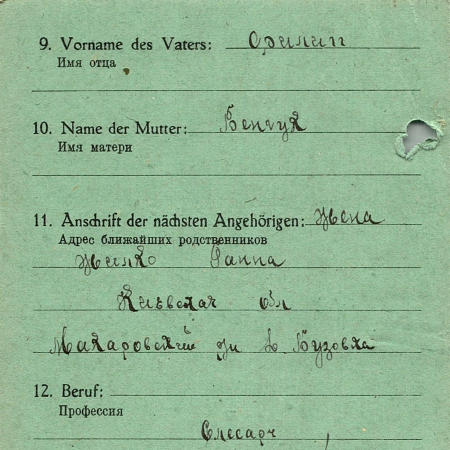 9. Vorname des Vaters: Филип
Имя отца
10. Name der Mutter: Бенгуя
Имя матери
11. Anschrift der nächsten Angehörigen: Жена
Адрес ближайших родственников
Жилко Ганна
Киевская обл
Макаровский с. Бузовка
12. Beruf:
Профессия
Слесарь